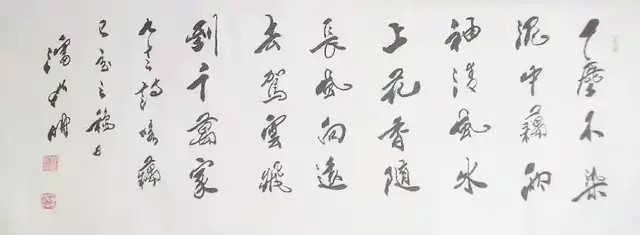 一塵不染
泥中藕兩
袖清風水
上花香隨
長風向遠
去駕雲飛
到千萬家
詩咏藕
己亥之
潘